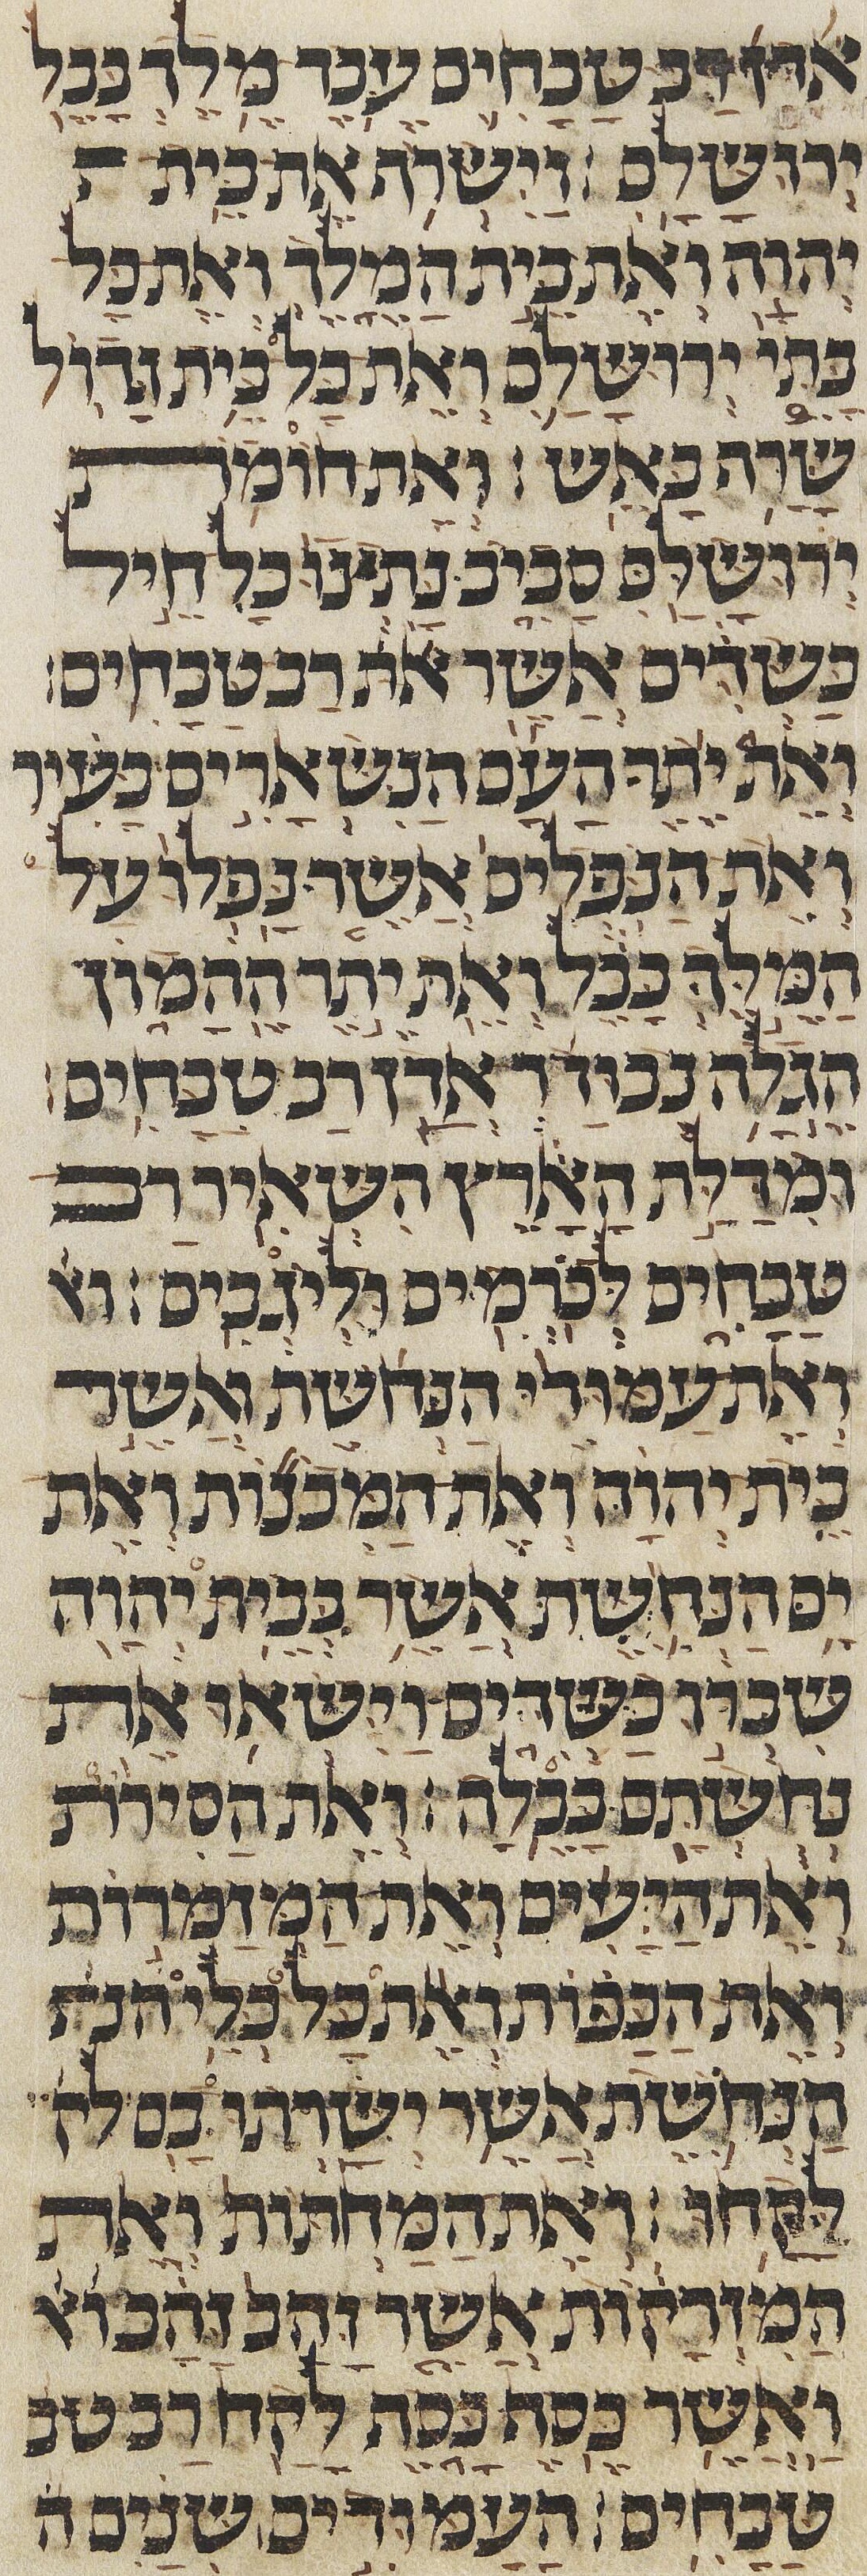 אדן רב טבחים עבד מלך בבל
ירושלם : וישרף את בית ה
יהוה ואת בית המלך ואת כל
בתי ירושלם ואת כל בית גדול
שרף באש : ואת חומת
ירושלם סביב נתצו כל חיל
כשדים אשר את רב טבחים :
ואת יתר העם הנשארים בעיר
ואת הנפלים אשר נפלו על
המלך בבל ואת יתר ההמון
הגלה נבוזר אדן רב טבחים :
ומדלת הארץ השאיר רב
טבחים לכרמים וליגבים : וא
ואת עמודי הנחשת ואשר
בית יהוה ואת המכנות ואת
ים הנחשת אשר בבית יהוה
שברו כשדים וישאו את
נחשתם בבלה : ואת הסירת
ואת היעים ואת המזמרות
ואת הכפות ואת כל כלי הנח
הנחשת אשר ישרתו בם לק
לקחו : ואת המחתות ואת
המזרקות אשר זהב זהב וא
ואשר כסף כסף לקח רב טב
טבחים : העמודים שנים ה